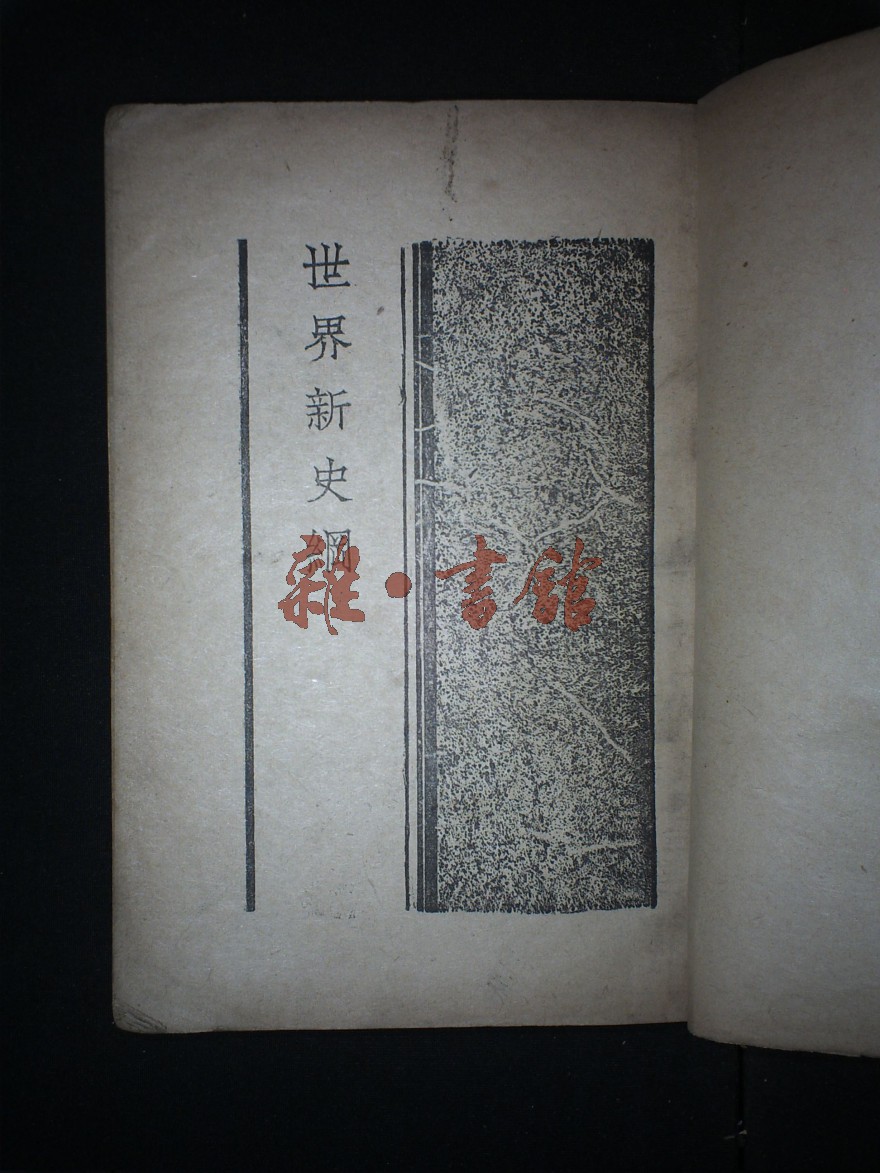 世界新史綱
雜·書館